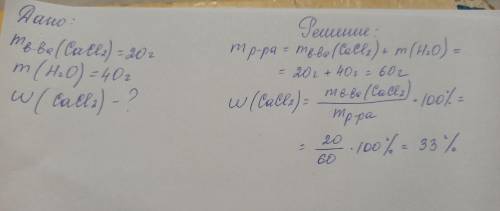 Дано:
m в-ва (CaCl₂) = 20г
m (H₂O) = 40г
W (CaCl₂) - ?
Решение:
m р-ра = m в-ва (CaCl₂) + m (H₂O) =
= 20г + 40г = 60г
W (CaCl₂) = m в-ва (CaCl₂) / m р-ра · 100% =
= 20/60 · 100% = 33%